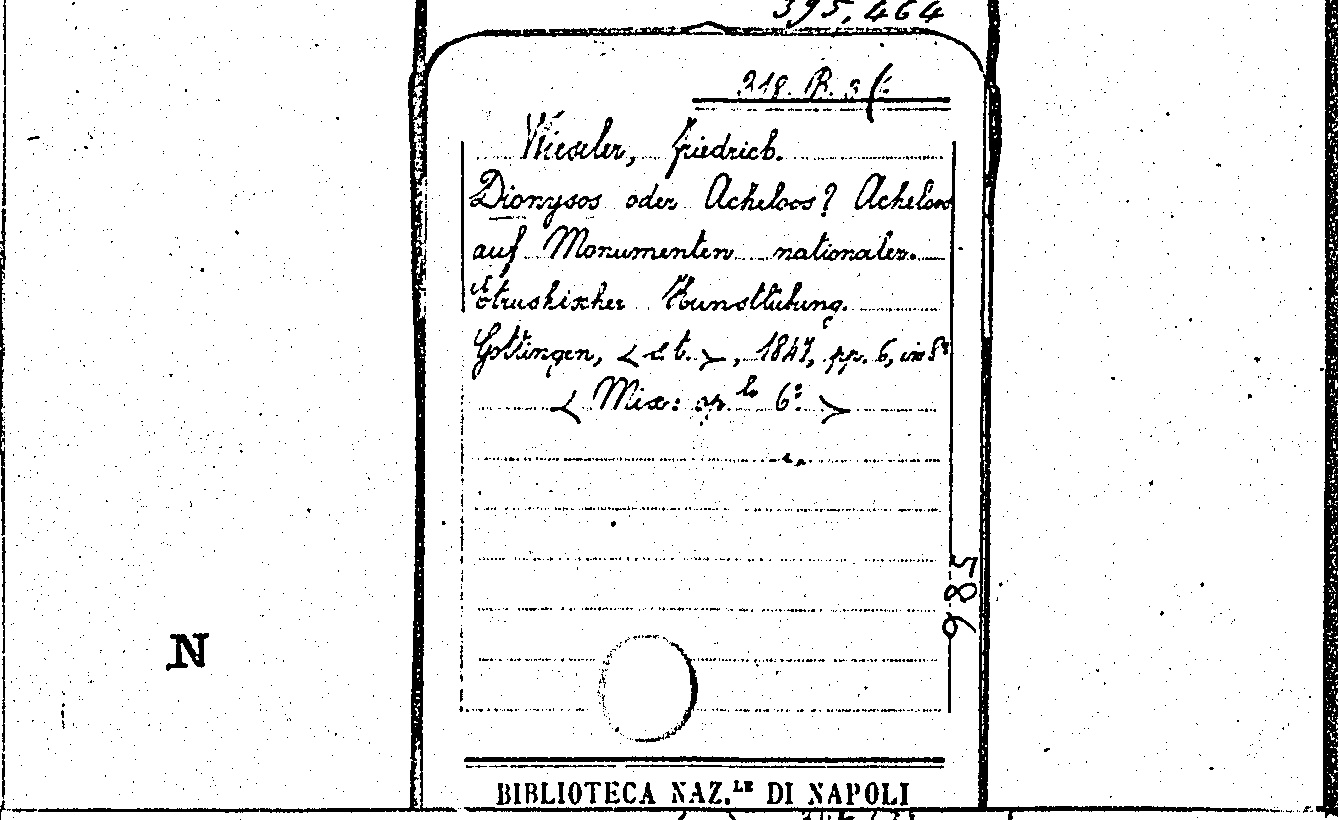 395,464
318. B. 3 (6
Wieseler, Friedrich.
Dionysos oder Acheloos? Acheloos
auf Monumenten nationaler
etruskischer Kunstübung.
Gottingen, <s. t.>, 1847, pp. 6, in 8°
< Misc: op.lo 6° >
985
N
BIBLIOTECA NAZ.LE DI NAPOLI